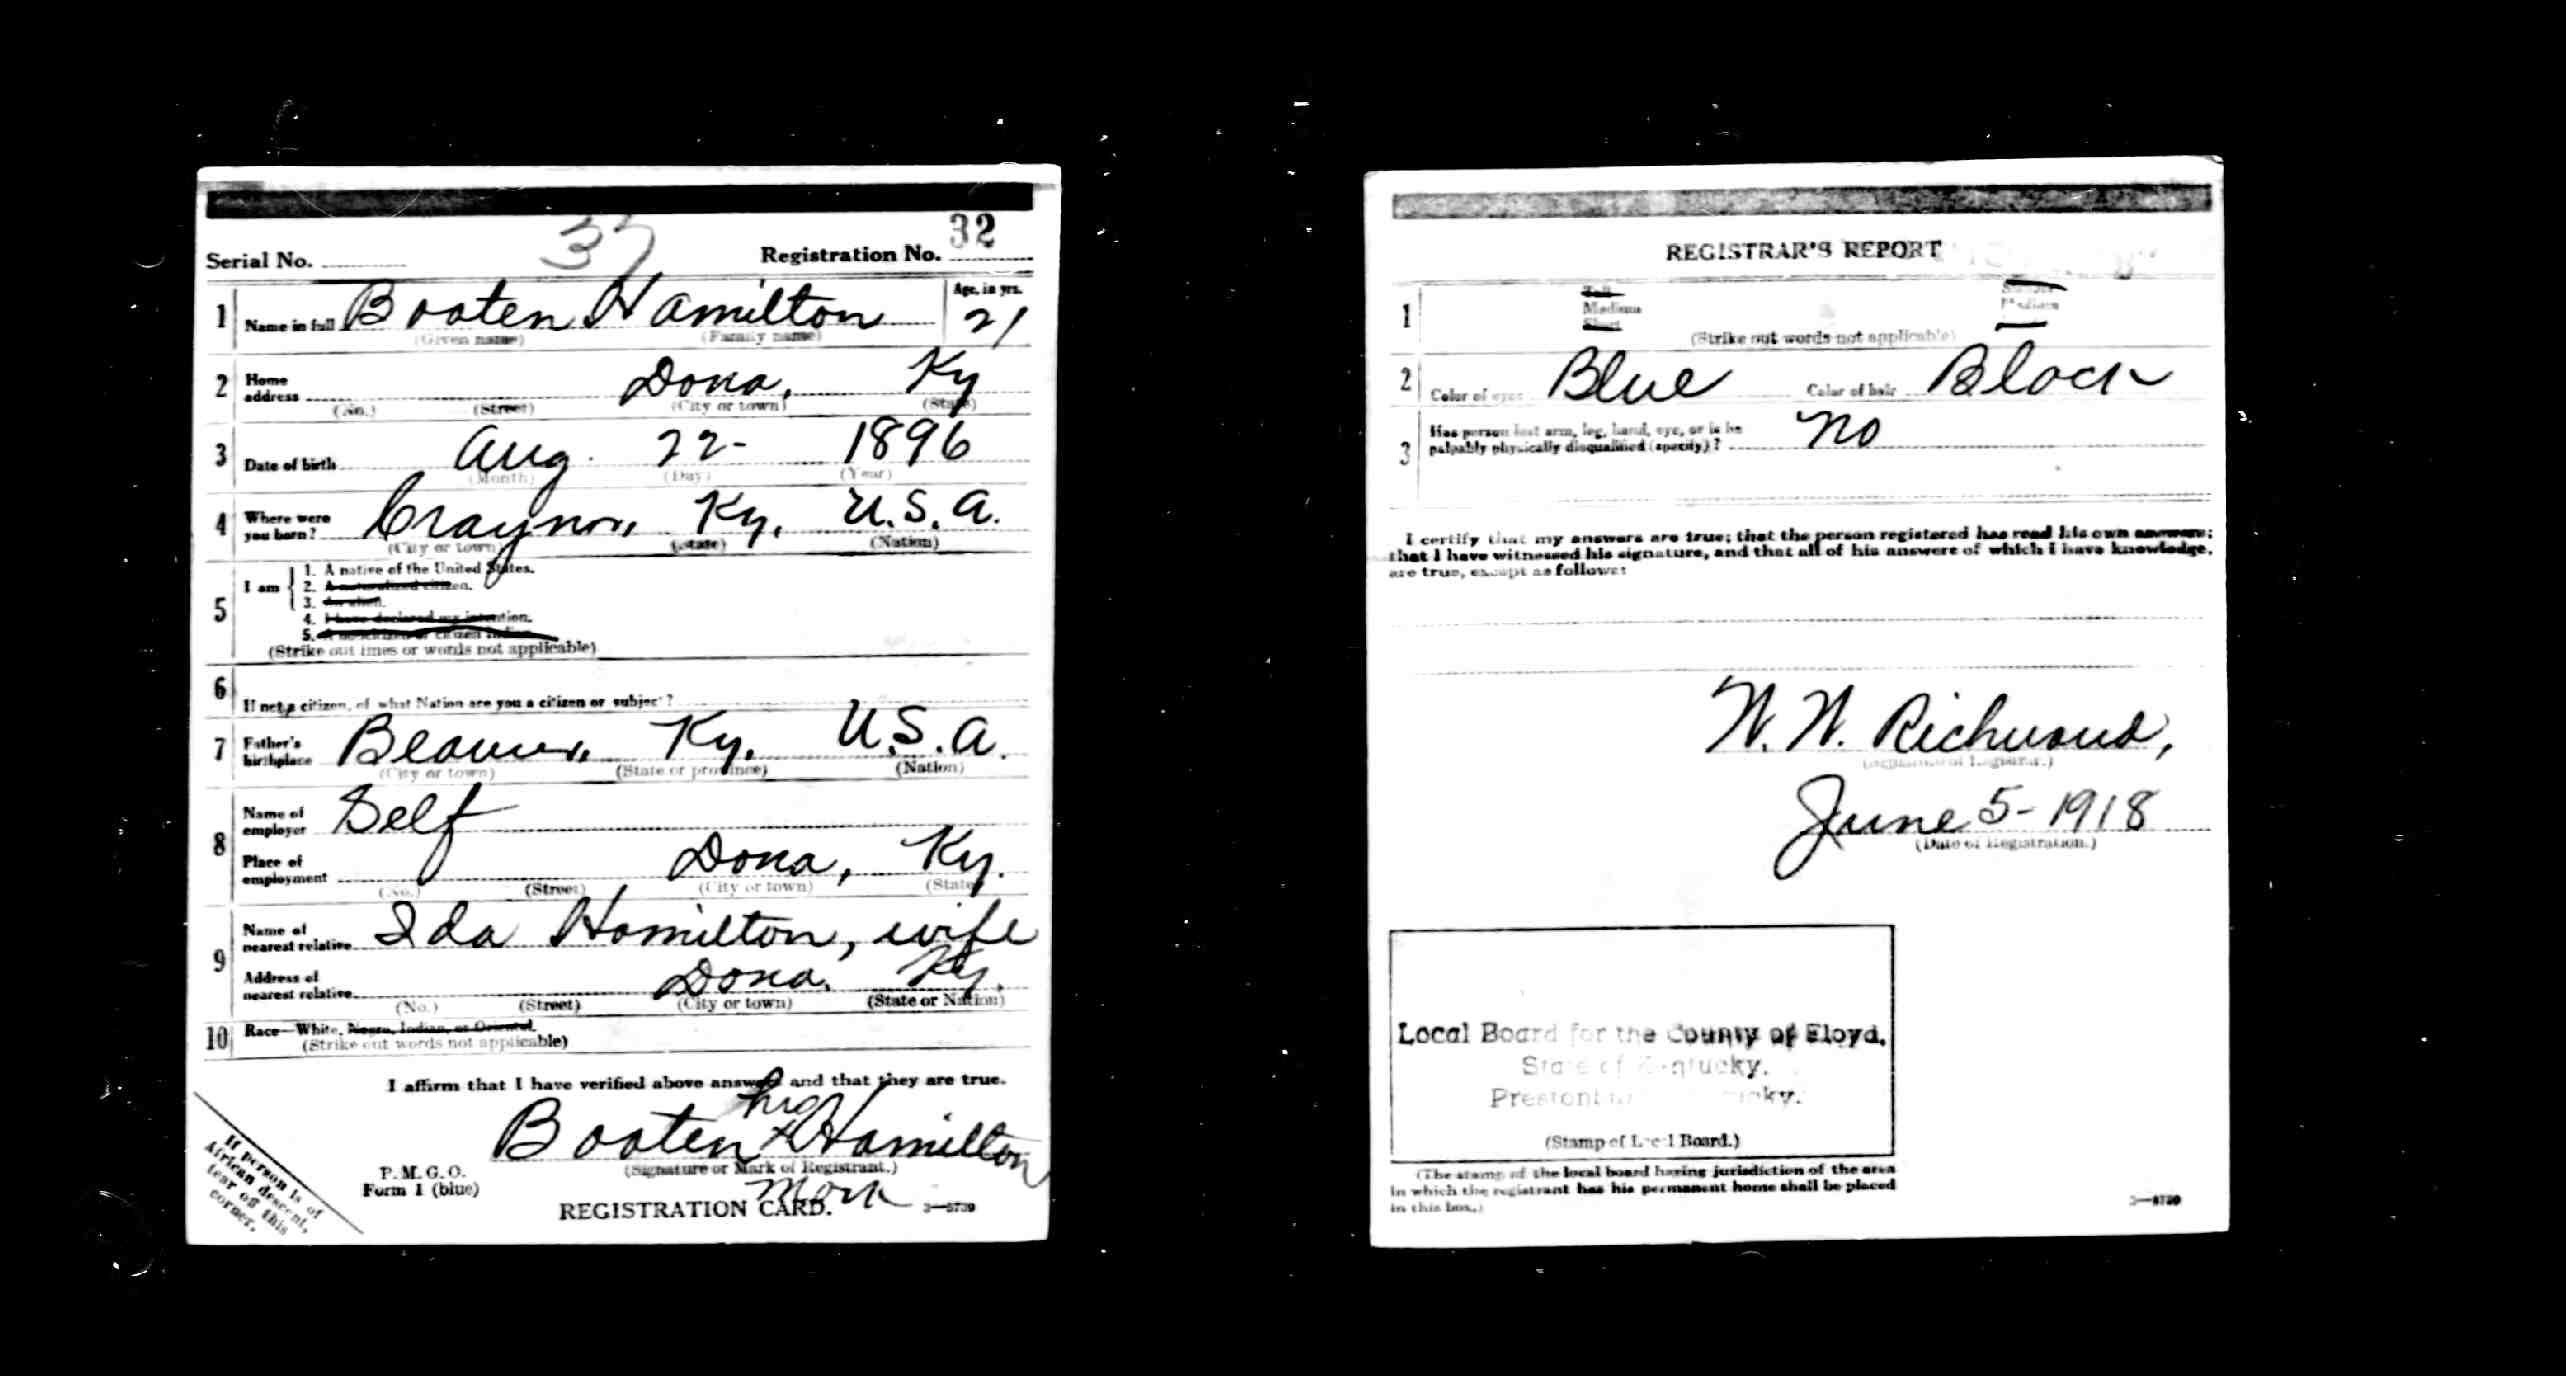 32
Serial No.
37
Registration No.
1
Name in full
Booten Hamilton
(Given name)
(Family name)
Age, in yrs.
21
2
Home address
Dona, Ky
(No.)
(Street)
(City or town)
(State)
3
Date of birth
Aug. 22- 1896
(Month)
(Day)
(Year)
4
Where were you born?
Craynor, Ky, U.S.A.
(City or town)
(State)
(Nation)
5
I am
1. A native of the United States.
2. A naturalized citizen.
3. An alien.
4. I have declared my intention.
5. A noncitizen or citizen Indian.
(Strike out lines or words not applicable)
6
If not a citizen, of what Nation are you a citizen or subject?
7
Father's birthplace
Beaver, Ky, U.S.A.
(City or town)
(State or province)
(Nation)
8
Name of employer
Self
Place of employment
Dona, Ky.
(No.)
(Street)
(City or town)
(State)
9
Name of nearest relative
Ida Hamilton, wife
Address of nearest relative
Dona, Ky.
(No.)
(Street)
(City or town)
(State or Nation)
10
Race—White, Negro, Indian, or Oriental.
(Strike out words not applicable)
I affirm that I have verified above answers and that they are true.
his
Booten x Hamilton
(Signature or Mark of Registrant.)
mark
P. M. G. O.
Form 1 (blue)
REGISTRATION CARD.
3—5739
If person is of
African descent,
tear off this
corner.
REGISTRAR'S REPORT
1
Tall
Medium
Short
Slender
Medium
(Strike out words not applicable)
2
Color of eyes
Blue
Color of hair
Black
3
Has person lost arm, leg, hand, eye, or is he
palpably physically disqualified (specify)?
no
I certify that my answers are true; that the person registered has read his own answers;
that I have witnessed his signature, and that all of his answers of which I have knowledge,
are true, except as follows:
W. W. Richmond,
(Signature of Registrar.)
June 5-1918
(Date of Registration.)
Local Board for the County of Floyd,
State of Kentucky.
(Stamp of Local Board.)
(The stamp of the local board having jurisdiction of the area
in which the registrant has his permanent home shall be placed
in this box.)
3—5739